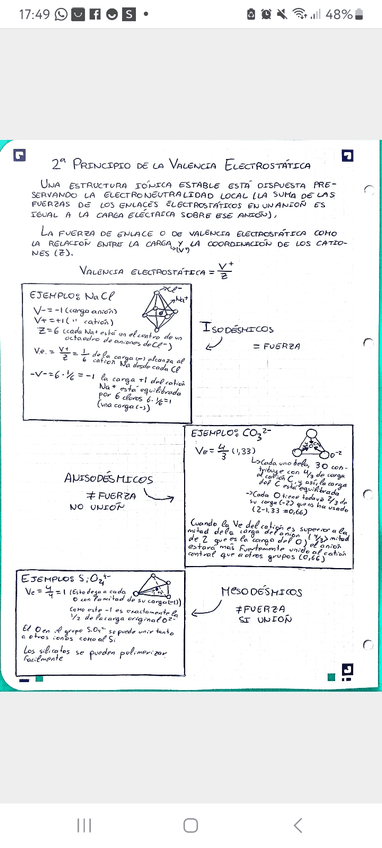 17:49
48%
2ª PRINCIPIO DE LA VALENCIA ELECTROSTÁTICA
UNA ESTRUCTURA IÓNICA ESTABLE ESTÁ DISPUESTA PRE-
SERVANDO LA ELECTRONEUTRALIDAD LOCAL (LA SUMA DE LAS
FUERZAS DE LOS ENLACES ELECTROSTÁTICOS EN UN ANIÓN ES
IGUAL A LA CARGA ELÉCTRICA SOBRE ESE ANIÓN).
LA FUERZA DE ENLACE O DE VALENCIA ELECTROSTÁTICA COMO
LA RELACIÓN ENTRE LA CARGA Y LA COORDINACIÓN DE LOS CATIO-
(V)
NES (Z).
VALENCIA ELECTROSTÁTICA = V+/Z
EJEMPLO: NaCl
Cl-
Na+
V- = -1 (carga anión)
V+ = +1 ( " catión)
Z = 6 (cada Na+ está en el centro de un
octaedro de aniones de Cl-)
Ve = V+/Z = 1/6 de la carga (-) alcanza al
catión Na desde cada Cl
-V- = 6 · 1/6 = -1 la carga +1 del catión
Na+ está equilibrada
por 6 cloros 6·1/6=1
(una carga (-))
ISODÉSMICOS
= FUERZA
EJEMPLO: CO3 2-
Ve = 4/3 (1,33)
O-2
ANISODÉSMICOS
≠ FUERZA
NO UNIÓN
Cada O tiene todavía 2/3 de
su carga (-2) que no ha usado
(2-1,33=0,66)
Cuando la Ve del catión es superior a la
mitad de la carga del anión (4/3 > mitad
de 2 que es la carga del O) el anión
estará más fuertemente unido al catión
central que a otros grupos (0,66)
EJEMPLO: SiO4 4-
Ve = 4/4 = 1 (Esto deja a cada
O con la mitad de su carga (-1))
Como este -1 es exactamente la
1/2 de la carga original O2-
El O en el grupo SiO4 4- se puede unir tanto
a otros iones como al Si
Los silicatos se pueden polimerizar
fácilmente
MESODÉSMICOS
≠ FUERZA
SI UNIÓN